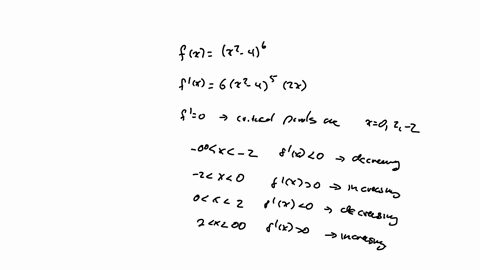 f(x) = (x²-4)⁶
f'(x) = 6(x²-4)⁵ (2x)
f'=0 → critical points are x=0, 2, -2
-∞<x<-2 f'(x)<0 → decreasing
-2<x<0 f'(x)>0 → increasing
0<x<2 f'(x)<0 → decreasing
2<x<∞ f'(x)>0 → increasing